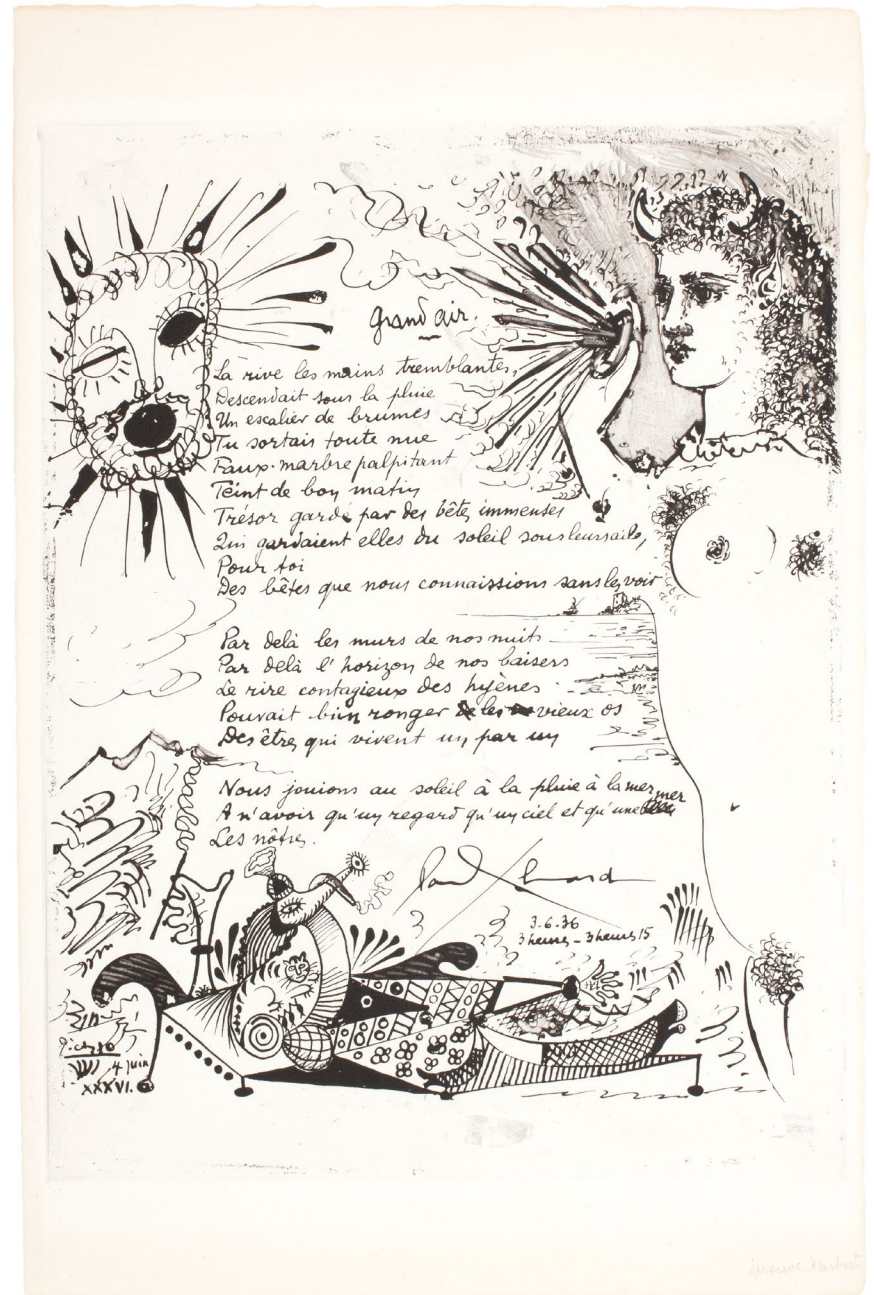 grand air
La rive les mains tremblantes,
Descendait sous la pluie
Un escalier de brumes
Tu sortais toute nue
Faux-marbre palpitant
Teint de bon matin
Trésor gardé par des bêtes immenses
Qui gardaient elles du soleil sous leurs ailes,
Pour toi
Des bêtes que nous connaissions sans les voir
Par delà les murs de nos nuits
Par delà l'horizon de nos baisers
Le rire contagieux des hyènes
Pouvait bien ronger les vieux os
Des êtres qui vivent un par un
Nous jouions au soleil à la pluie à la mer
A n'avoir qu'un regard qu'un ciel et qu'une mer
Les nôtres.
Paul Eluard
3-6-36
3 heures - 3 heures 15
Picasso
4 juin
XXXVI.
épreuve d'artiste